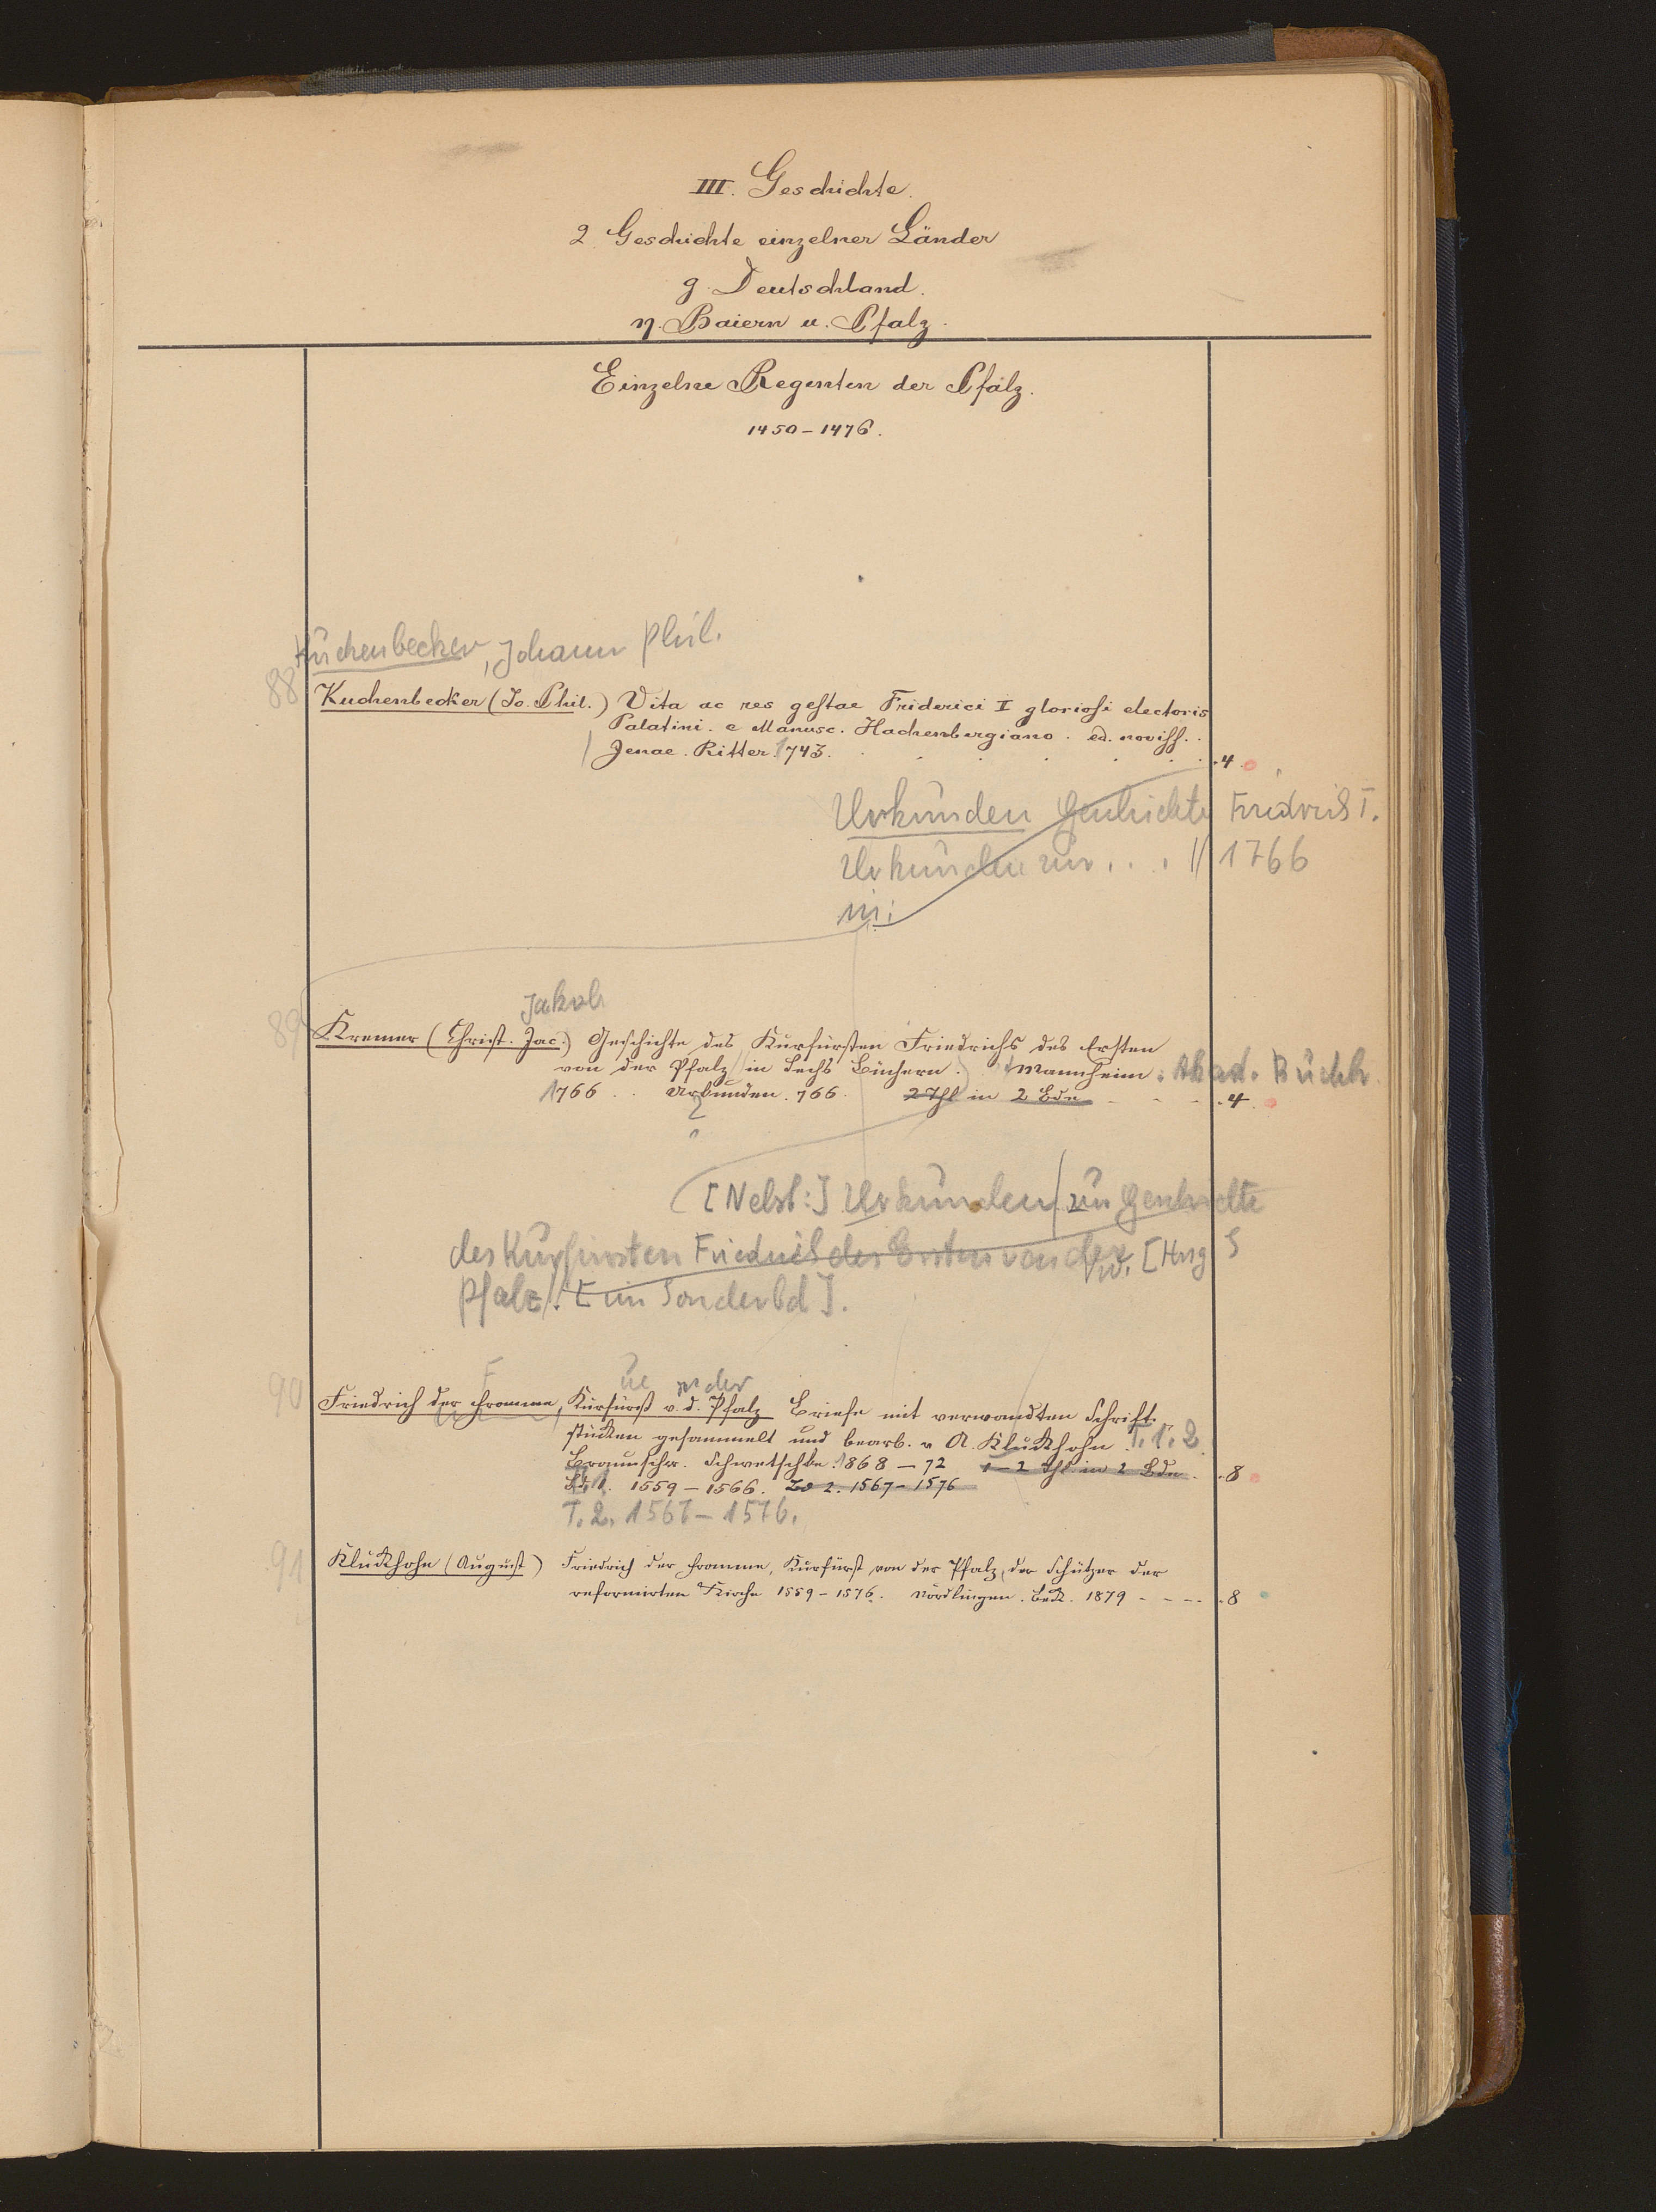 III. Geschichte.
2. Geschichte einzelner Länder
g. Deutschland.
η. Baiern u. Pfalz.
Einzelne Regenten der Pfalz.
1450-1476.
Küchenbecker, Johann Phil.
88
Kuchenbecker (Jo. Phil.) Vita ac res gestae Friderici I gloriosi electoris
Palatini. e Manusc. Hachenbergiano. ed. noviss.
Jenae. Ritter. 1743. 4.
Urkunden Geschichte Friedrichs I.
Urkunden zur . . . // 1766
in:
Jakob
89
Kremer (Christ. Jac.) Geschichte des Kurfürsten Friedrichs des Ersten
von der Pfalz in sechs Büchern. Mannheim: Akad. Buchh.
1766. Urkunden. 766. 2 Thl in 2 Bde - - - 4.
[Nebst:] Urkunden zur Geschichte
des Kurfürsten Friedrichs des Ersten von der
Pfalz. [im Sonderbd].
F ue von der
90
Friedrich der Fromme, Kurfürst v. d. Pfalz Briefe mit verwandten Schrift-
stücken gesammelt und bearb. v A. Kluckhohn. T. 1. 2.
Braunschw. Schwetschke. 1868-72 1-2 Thl. in 2 Bde. 8
1. 1559-1566. Bd 2. 1567-1576
T. 2. 1567-1576.
91
Kluckhohn (August) Friedrich der Fromme, Kurfürst von der Pfalz, der Schützer der
reformirten Kirche 1559-1576. Nördlingen. Beck. 1879 - - - - 8